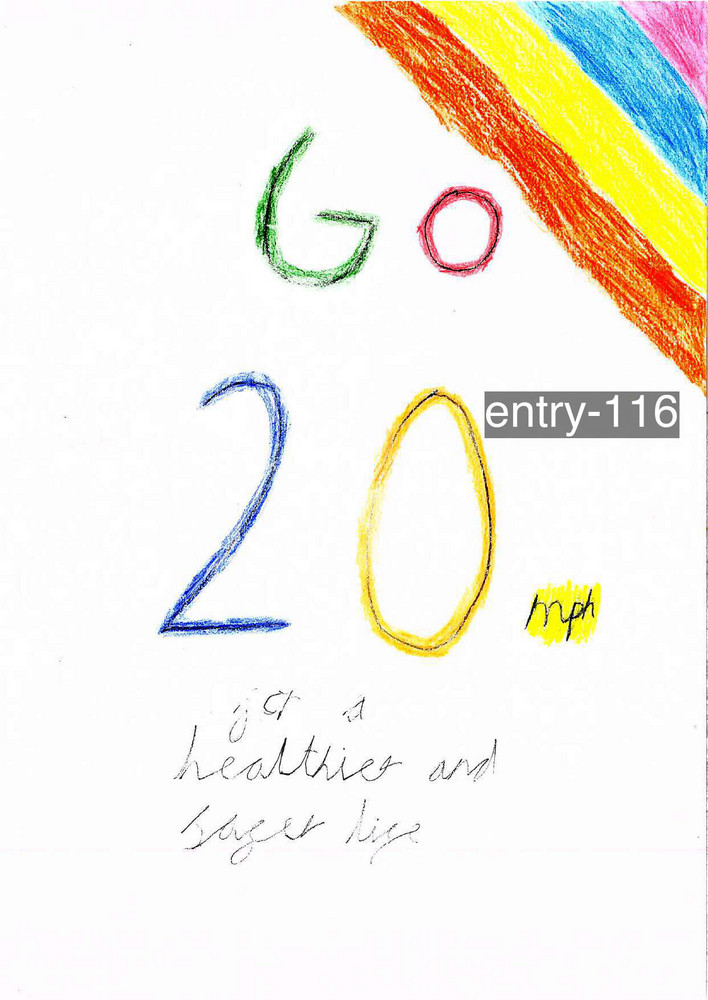 Go
20
entry-116
mph
get a
healthier and
safer life